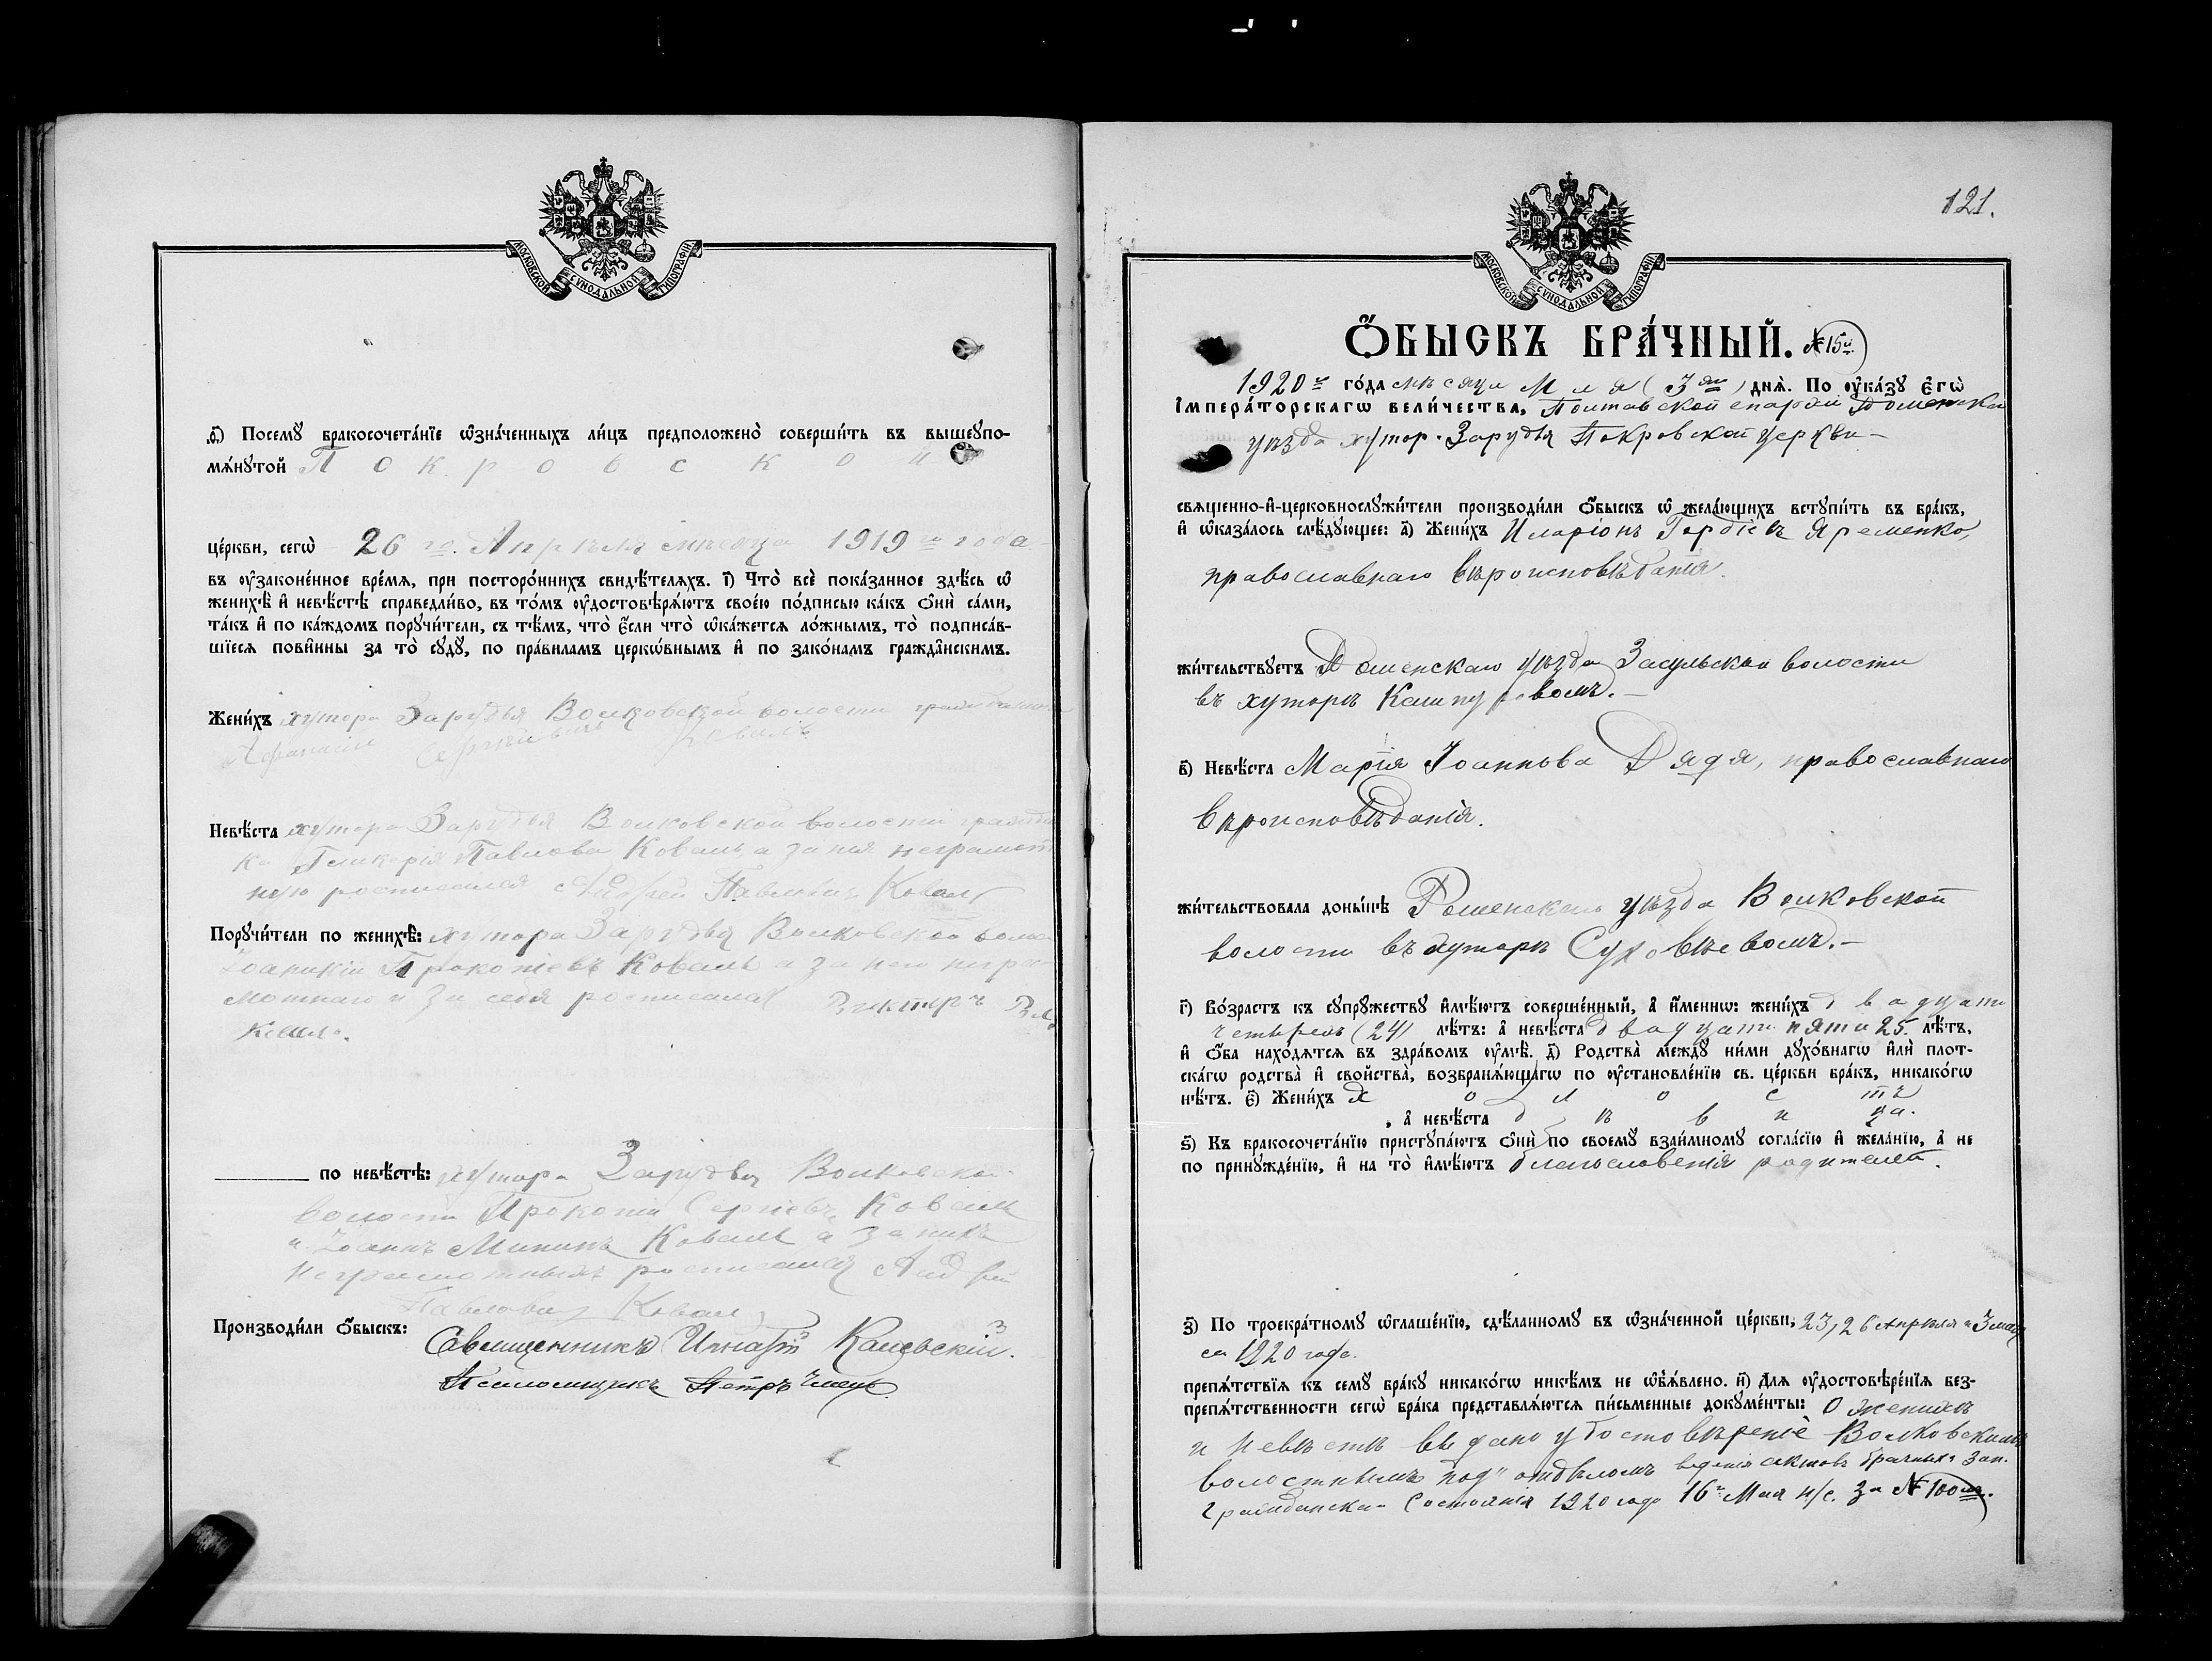 МОСКОВСКОЙ СУНОДАЛЬНОЙ ТИПОГРАФІИ
ѳ҃) Посемꙋ̀ бракосочета́нїе ѡ҆зна́ченныхъ ли́цъ предположено̀ соверши́ть въ вышеꙋпо-
мѧ́нꙋтой Покровской
це́ркви, сегѡ̀ 26 го. Апрѣля мѣсяца 1919 го года
въ ᲂу҆зако́ненное вре́мѧ, при посторо́ннихъ свидѣ́телѧхъ. і҃) Что̀ всѐ пока́занное здѣ́сь ѡ҆
женихѣ̀ и҆ невѣ́стѣ справедли́во, въ то́мъ ᲂу҆достовѣрѧ́ютъ свое́ю по́дписью ка́къ ѻ҆нѝ са́ми,
та́къ и҆ по ка́ждомъ порꙋчи́тели, съ тѣ́мъ, что̀ є҆́сли что̀ ѡ҆ка́жетсѧ ло́жнымъ, то̀ подписа́в-
шїесѧ пови́нны за то̀ сꙋдꙋ̀, по пра́виламъ церко́внымъ и҆ по зако́намъ гражда́нскимъ.
Жени́хъ хутора Зарудья Волковской волости
Афанасій
Невѣ́ста хутора Зарудья Волковской волости
Гликерія Павлова Коваль, а за нея неграмот
ную росписался Андрей Павловичъ Коваль
Порꙋчи́тели по женихѣ̀: хутора Зарудья Волковской
Іоаникій Прокопіевъ Коваль а за него негра-
мотнаго и за себя росписался Викторъ
по невѣ́стѣ: хутора Зарудья Волковской
волости Прокопій Сергіевъ Коваль
и Іоаннъ Мининъ Коваль а за нихъ
неграмотныхъ росписался Андрей
Павловичъ Коваль
Производи́ли ѻ҆́быскъ: Священникъ Игнатій
Псаломщикъ Петръ
121.
МОСКОВСКОЙ СУНОДАЛЬНОЙ ТИПОГРАФІИ
Ѻ҆́БЫСКЪ БРА́ЧНЫЙ. № 15й.
1920 го го́да мѣсяца Мая (3 дня) днѧ̀. По ᲂу҆ка́зꙋ є҆гѡ̀
І҆мпера́торскагѡ вели́чества, Полтавской епархіи Роменскаго
уѣзда хутор. Зарудья Покровской церкви
свѧщенно-и҆-церковнослꙋжи́тели производи́ли ѻ҆́быскъ ѡ҆ жела́ющихъ встꙋпи́ть въ бра́къ,
и҆ ѡ҆каза́лось слѣ́дꙋющее: а҃) Жени́хъ Иларіонъ Гордіевъ Яременко,
православнаго вѣроисповѣданія.
жи́тельствꙋетъ Роменскаго уѣзда Засульской волости
въ хуторѣ Кашпуровомъ.
в҃) Невѣ́ста Марія Іоаннова Дядя, православнаго
вѣроисповѣданія.
жи́тельствовала доны́нѣ Роменскаго уѣзда Волковской
волости въ хуторѣ Суховѣевомъ.
г҃) Во́зрастъ къ сꙋпрꙋ́жествꙋ и҆мѣ́ютъ соверше́нный, а҆ и҆́меннѡ: жени́хъ двадцати
четырехъ (24) лѣ́тъ: а҆ невѣ́ста двадцати пяти 25 лѣ́тъ,
и҆ ѻ҆́ба нахо́дѧтсѧ въ здра́вомъ ᲂу҆мѣ̀. д҃) Родства̀ междꙋ̀ ни́ми дꙋхо́внагѡ и҆лѝ плот-
ска́гѡ родства̀ и҆ свойства̀, возбранѧ́ющагѡ по ᲂу҆становле́нїю св. це́ркви бра́къ, никако́гѡ
нѣ́тъ. є҃) Жени́хъ холостъ
, а҆ невѣ́ста дѣвица.
ѕ҃) Къ бракосочета́нїю пристꙋпа́ютъ ѻ҆нѝ по своемꙋ̀ взаи́мномꙋ согла́сїю и҆ жела́нїю, а҆ не
по принꙋжде́нїю, и҆ на то̀ и҆мѣ́ютъ благословенія родителей.
з҃) По троекра́тномꙋ ѡ҆глаше́нїю, сдѣ́ланномꙋ въ ѡ҆зна́ченной це́ркви, 23, 26 Апрѣля и 3 мая
1920 года.
препѧ́тствїѧ къ семꙋ̀ бра́кꙋ никако́гѡ никѣ́мъ не ѡ҆б̾ѧ́влено. и҃) Длѧ̀ ᲂу҆достовѣре́нїѧ без-
препѧ́тственности сегѡ̀ бра́ка представлѧ́ютсѧ пи́сьменные докꙋме́нты: О женихѣ
и невѣстѣ выдано удостовѣреніе Волковскимъ
волостнымъ под" отдѣломъ веденія актовъ брачныхъ зап.
Гражданска- Состоянія 1920 года 16 го Мая н/с. за № 100мъ.